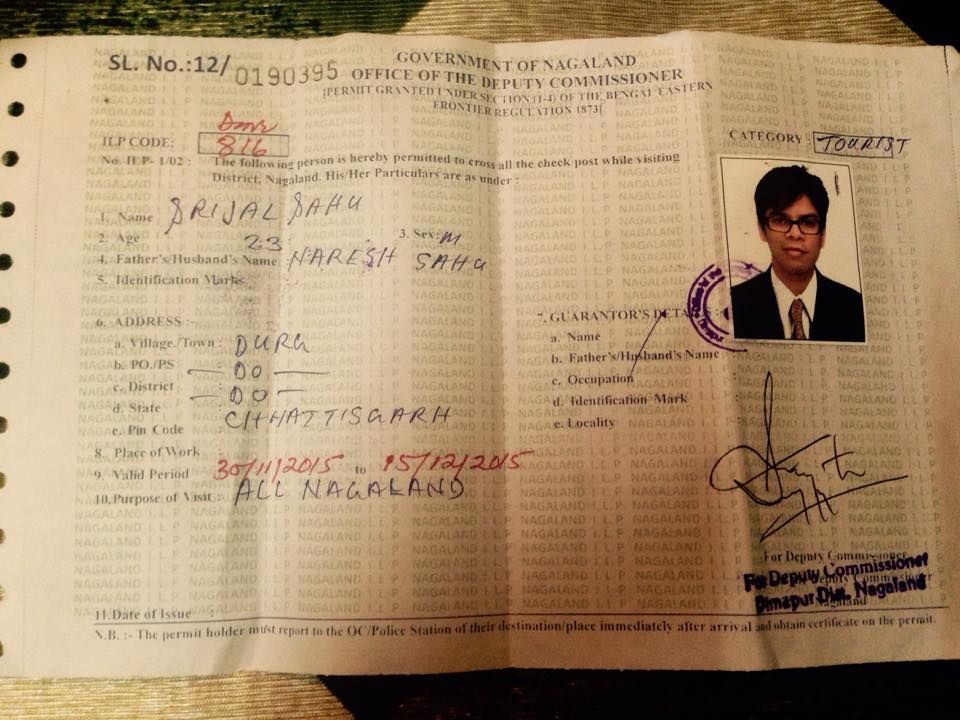 SL. No.:12/ 0190395
GOVERNMENT OF NAGALAND
OFFICE OF THE DEPUTY COMMISSIONER
[PERMIT GRANTED UNDER SECTION (1-4) OF THE BENGAL EASTERN
FRONTIER REGULATION 1873[
ILP CODE: Dmr 816
CATEGORY : TOURIST
No. ILP- 1/02 : The following person is hereby permitted to cross all the check post while visiting
District, Nagaland. His/Her Particulars are as under :
1. Name SRIJAL SAHU
2. Age 23 3. Sex: M
4. Father's/Husband's Name NARESH SAHU
5. Identification Marks
6. ADDRESS :-
a. Village/Town : DURG
b. PO/PS — DO —
c. District — DO —
d. State CHHATTISGARH
e. Pin Code :
7. GUARANTOR'S DETAILS :
a. Name
b. Father's/Husband's Name
c. Occupation
d. Identification Mark
e. Locality
8. Place of Work
9. Valid Period 30/11/2015 to 15/12/2015
10. Purpose of Visit : ALL NAGALAND
For Deputy Commissioner
For Deputy Commissioner
Dimapur Dist. Nagaland
Nagaland
11. Date of Issue :
N.B. :- The permit holder must report to the OC/Police Station of their destination/place immediately after arrival and obtain certificate on the permit.